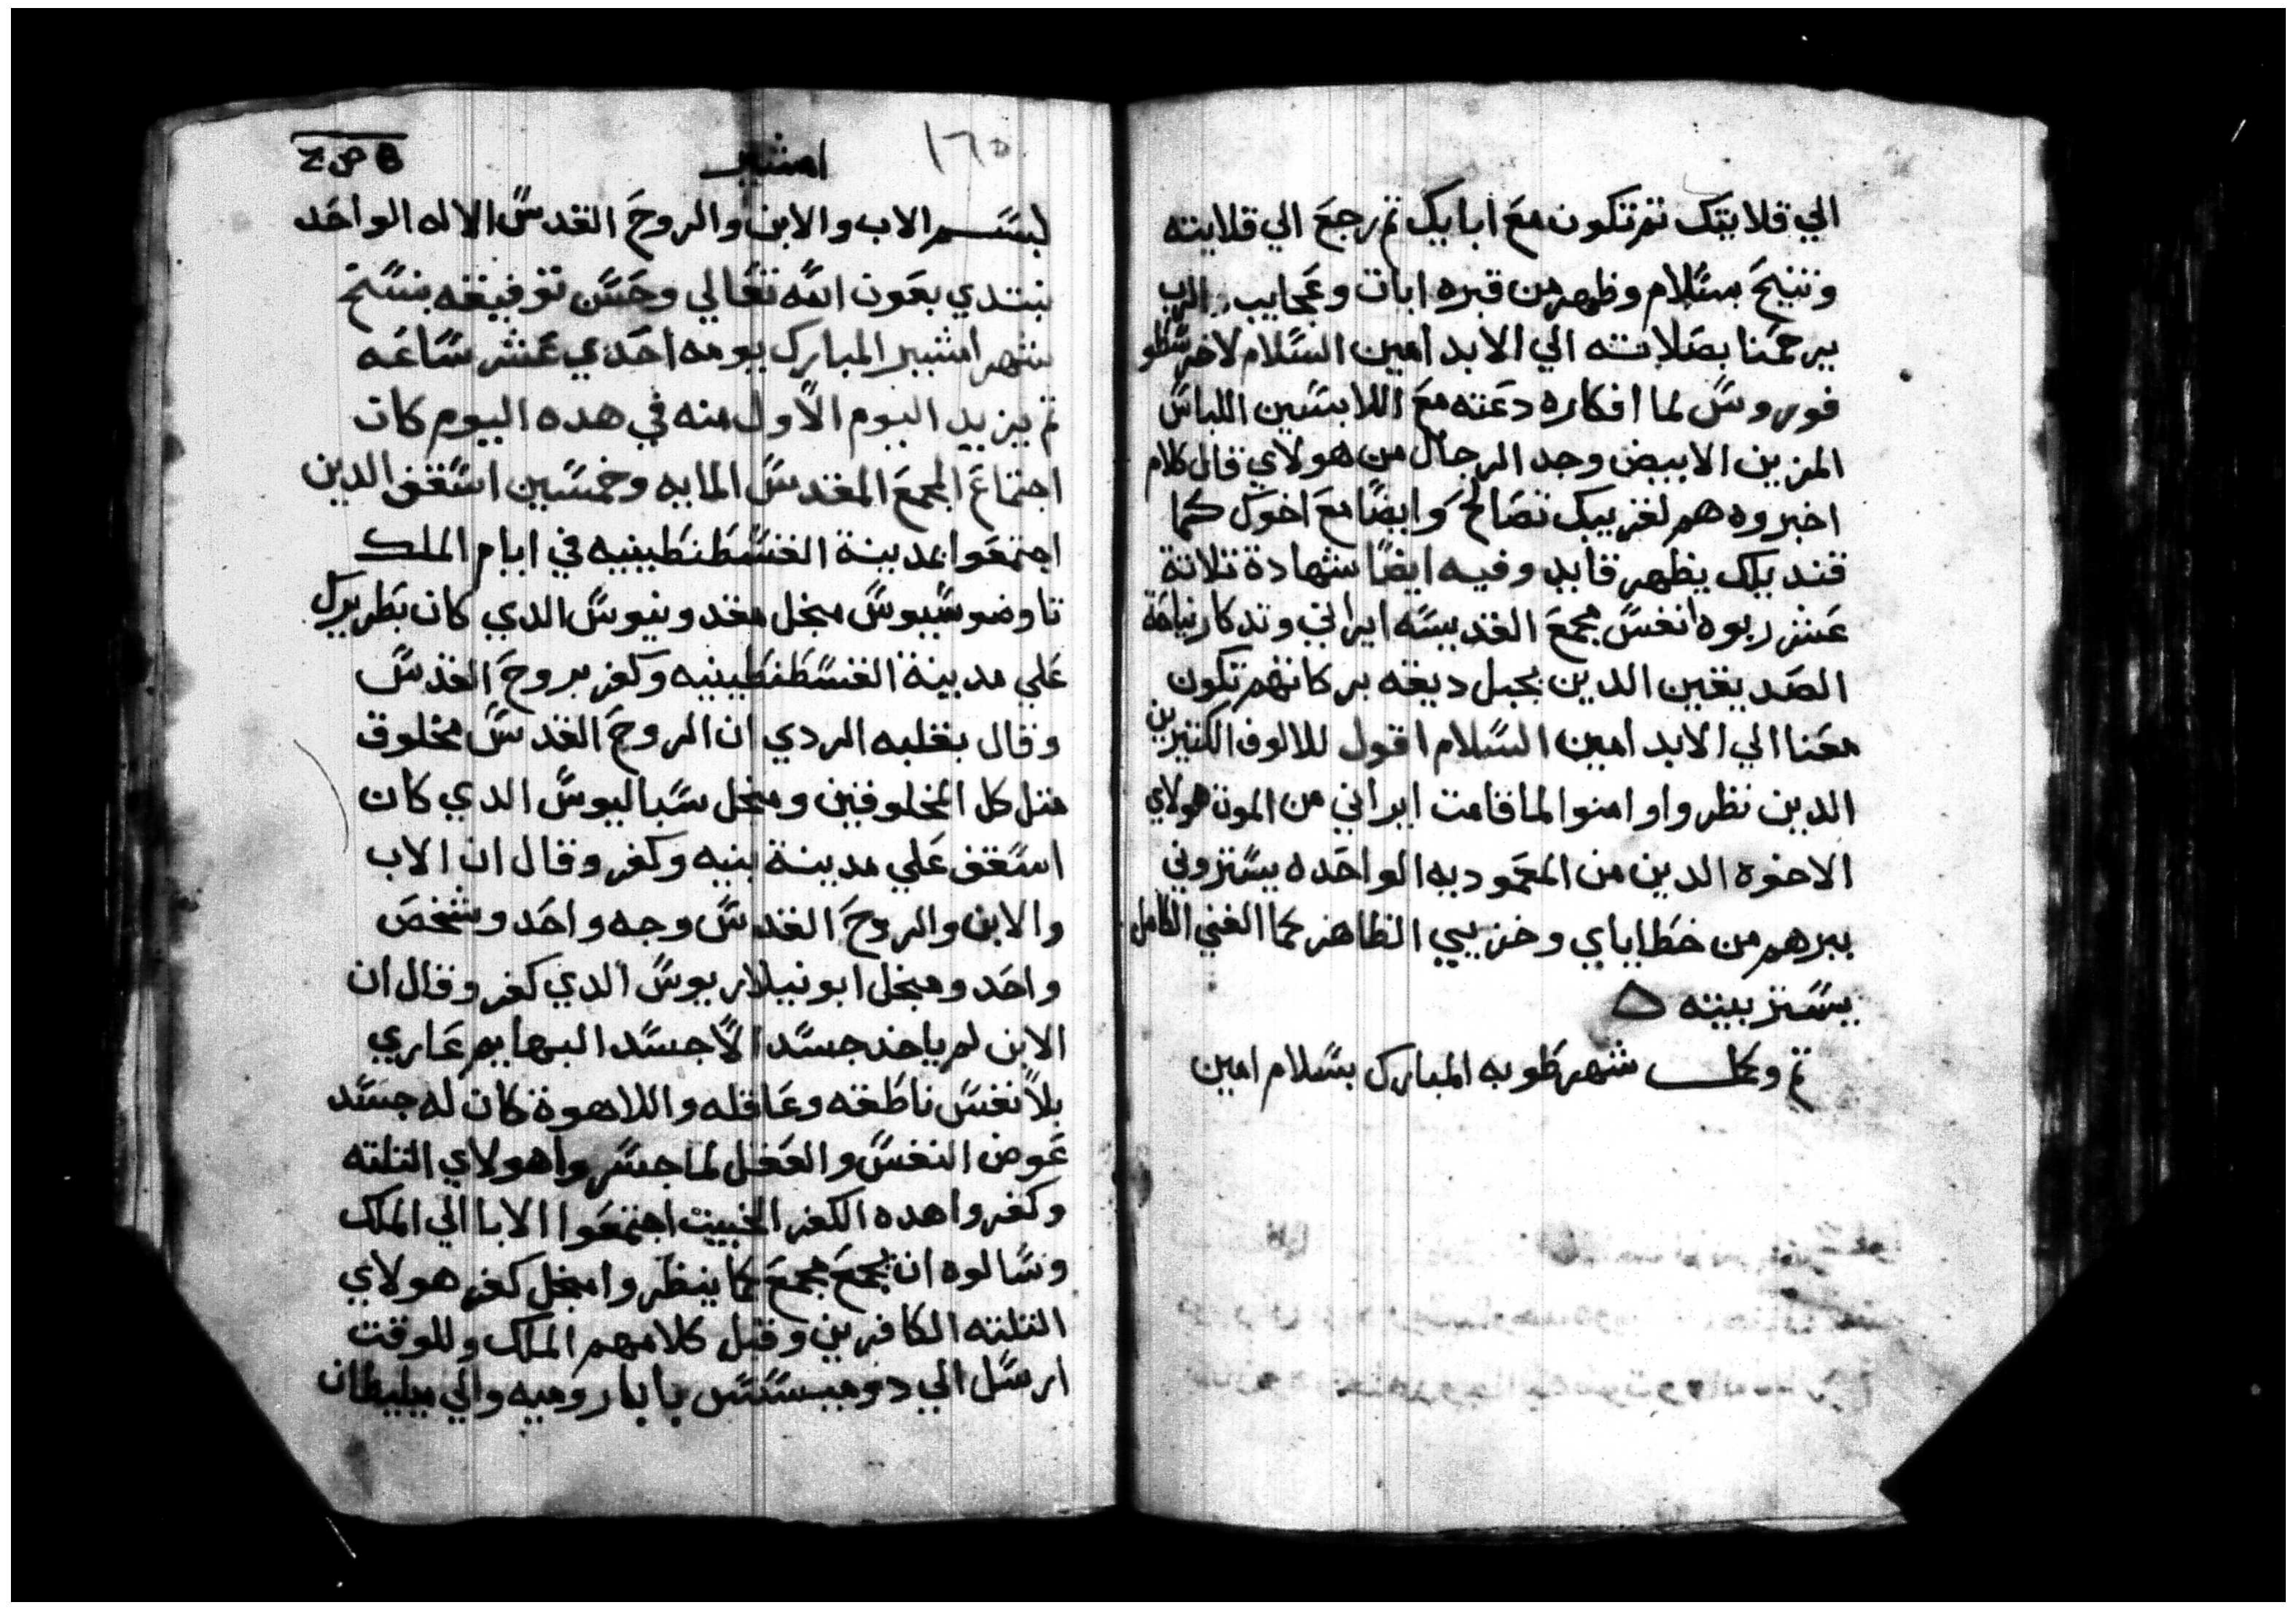 الي قلايتك تم تكون مع ابايك تم رجع الي قلايته
وتنيح بسلام وظهر من قبره ايات وعجايب الرب
يرحمنا بصلاته الي الابد امين السلام لاخر سطو
فوروس لما افكاره دعته مع اللابسين اللباس
المزين الابيض وجد الرجال من هولاي قال كلام
اخبروه هم لغريبك تصالح وايضا مع اخوك كما
قنديلك يظهر قايد وفيه ايضا شهادة تلاتة
عشر ربوه انفس مجمع القديسه ايراني وتدكار نياحة
الصديقين الدين بجبل ديقه بركاتهم تكون
معنا الي الابد امين السلام اقول للالوف الكتيرين
الدين نظروا وامنوا لما قامت ايراني من الموت هولاي
الاخوه الدين من المعموديه الواحده يستروني
ببرهم من خطاياي وخزيي الظاهر كما الغني الكامل
يستر بيته
تم وكمل شهر طوبه المبارك بسلام امين
١٦٥
امشير
بسم الاب والابن والروح القدس الاله الواحد
نبتدي بعون الله تعالي وحسن توفيقه بنسخ
شهر امشير المبارك يومه احدي عشر ساعه
تم يزيد اليوم الاول منه في هده اليوم كان
اجتماع المجمع المقدس المايه وخمسين اسقف الدين
اجتمعوا بمدينة القسطنطينيه في ايام الملك
تاوضوسيوس مجل مقدونيوس الدي كان بطريرك
علي مدينة القسطنطينيه وكفر بروح القدس
وقال بقلبه الردي ان الروح القدس مخلوق
متل كل المخلوقين ومجل سباليوس الدي كان
اسقف علي مدينة بنيه وكفر وقال ان الاب
والابن والروح القدس وجه واحد وشخص
واحد ومجل ابونيلاريوس الدي كفر وقال ان
الابن لم ياخد جسد الا جسد البهايم عاري
بلا نفس ناطقه وعاقله واللاهوة كان له جسد
عوض النفس والعقل لما جسروا هولاي التلته
وكفروا هده الكفر الخبيت اجتمعوا الابا الي الملك
وسالوه ان يجمع مجمع كما ينظروا مجل كفر هولاي
التلته الكافرين وقبل كلامهم الملك وللوقت
ارسل الي دوميسسس بابا روميه والي ميليطان